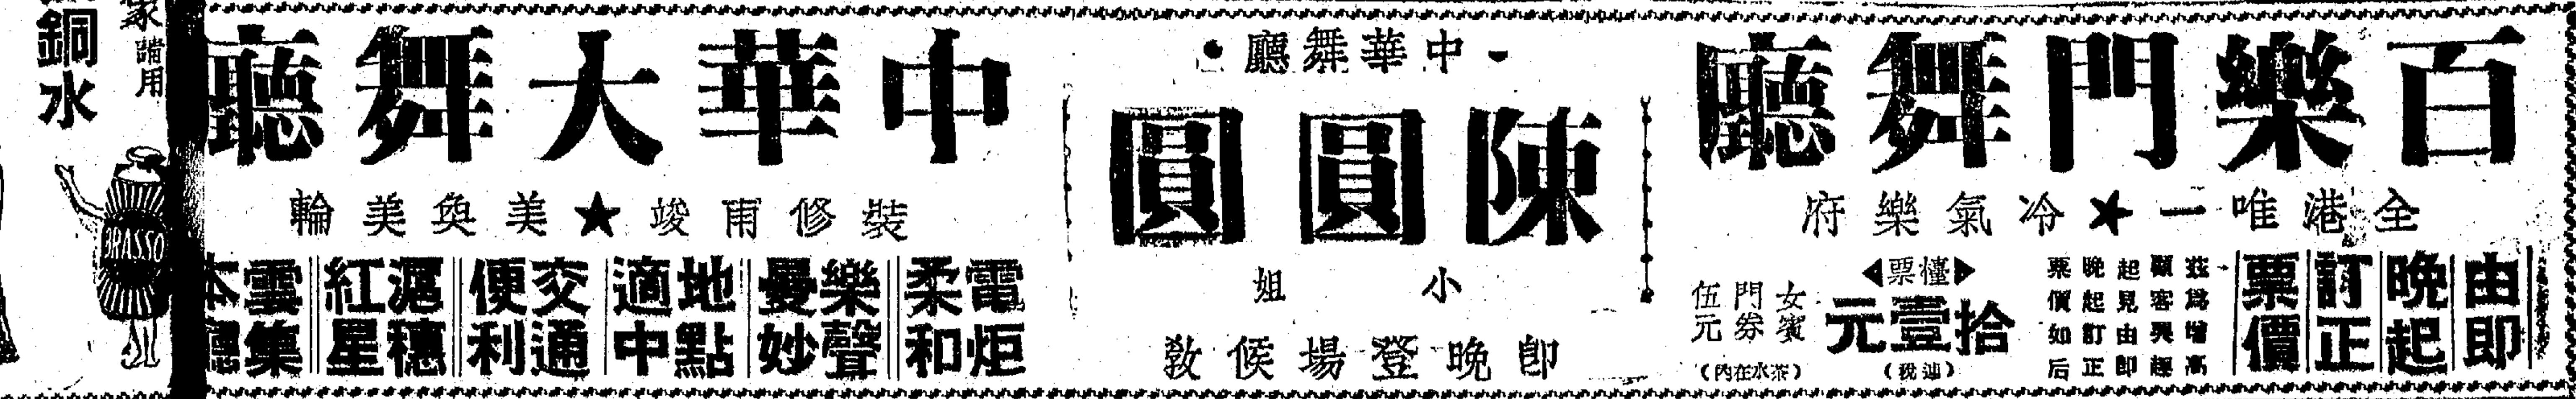 百樂門舞廳
全港唯一★冷氣樂府
由即
晚起
訂正
票價
茲爲增高
顧客興趣
起見由即
晚起訂正
票價如后
檯票
拾壹元
(連稅)
女賓
門券
伍元
(茶水在內)
中華舞廳
陳圓圓
小姐
即晚登場候教
中華大舞廳
裝修甫竣★美奐美輪
電炬柔和
樂聲曼妙
地點適中
交通便利
滬穗紅星
雲集本廳
家請用
銅水
BRASSO